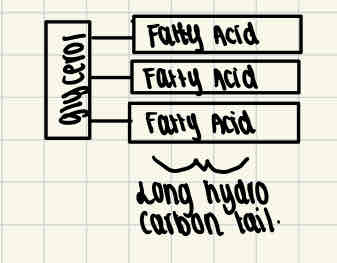 glycerol
Fatty Acid
Fatty Acid
Fatty Acid
Long hydro
carbon tail.